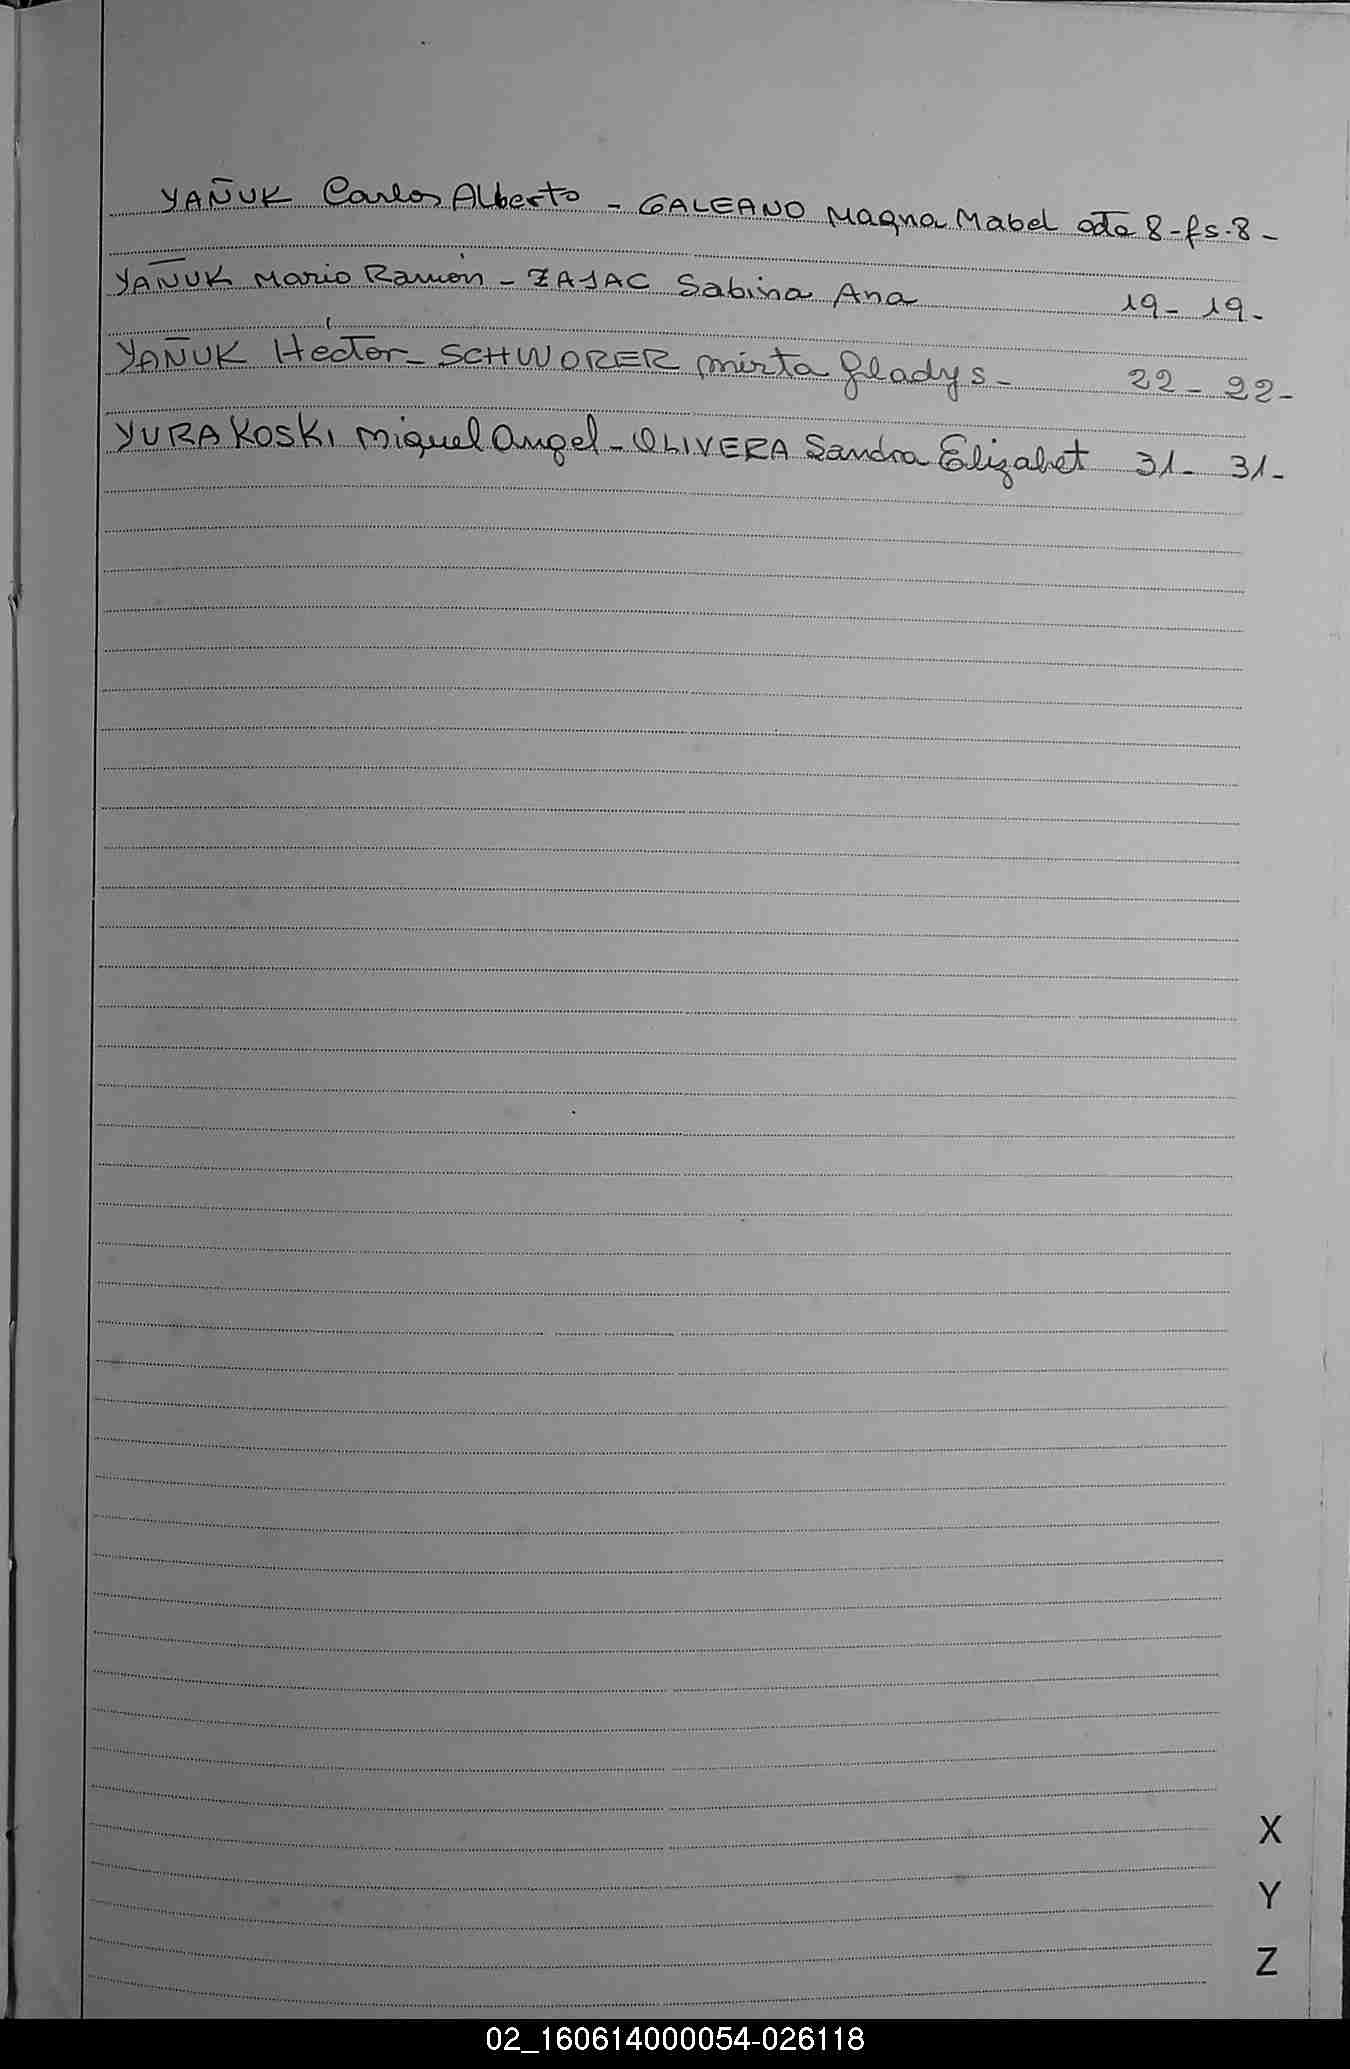 YAÑUK Carlos Alberto - GALEANO Magna Mabel acta 8 - fs. 8 -
YAÑUK Mario Ramón - ZAJAC Sabina Ana 19 - 19 -
YAÑUK Héctor - SCHWORER Mirta Gladys - 22 - 22 -
YURAKOSKI Miguel Angel - OLIVERA Sandra Elizabet 31 - 31 -
X
Y
Z
02_160614000054-026118